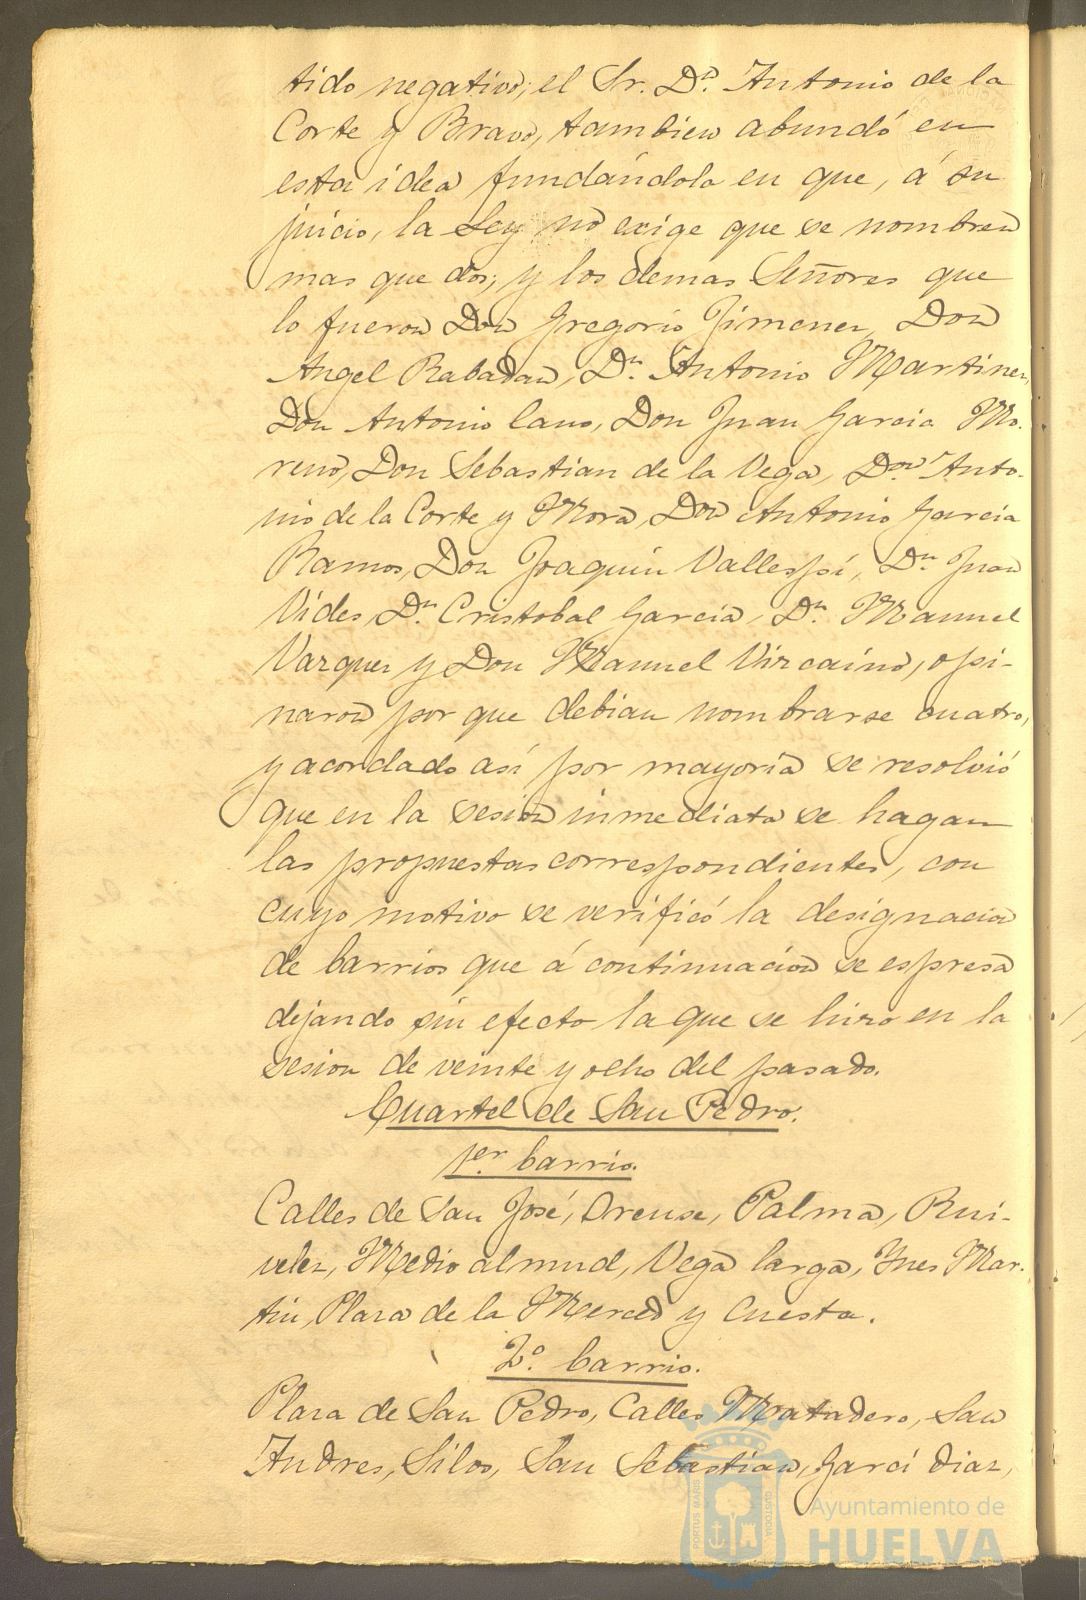 tido negativo; el Sr. Dn. Antonio de la
Corte y Bravo, tambien abundó en
esta idea fundándola en que, á su
juicio, la Ley no exige que se nombren
mas que dos; y los demas Señores que
lo fueron Don Gregorio Jimenez, Don
Angel Rabadan, Dn. Antonio Martinez,
Don Antonio Cano, Don Juan Garcia Mo-
reno, Don Sebastian de la Vega, Don Anto-
nio de la Corte y Mora, Don Antonio Garcia
Ramos, Don Joaquin Vallespí, Dn. Juan
Vides, Dn. Cristobal Garcia, Dn. Manuel
Vazquez y Don Manuel Vizcaino, opi-
naron por que debian nombrarse cuatro,
y acordado así por mayoria se resolvió
que en la sesion inmediata se hagan
las propuestas correspondientes, con
cuyo motivo se verificó la designacion
de barrios que á continuacion se espresa
dejando sin efecto la que se hizo en la
sesion de veinte y ocho del pasado.
Cuartel de San Pedro.
1er. barrio.
Calles de San José, Orense, Palma, Rui-
velez, Medio almud, Vega larga, Ynes Mar-
tin, Plaza de la Merced y Cuesta.
2º. barrio.
Plaza de San Pedro, Calles Matadero, San
Andres, Silos, San Sebastian, Garci Diaz,
PORTUS MARIS
CUSTODIA
Ayuntamiento de
HUELVA